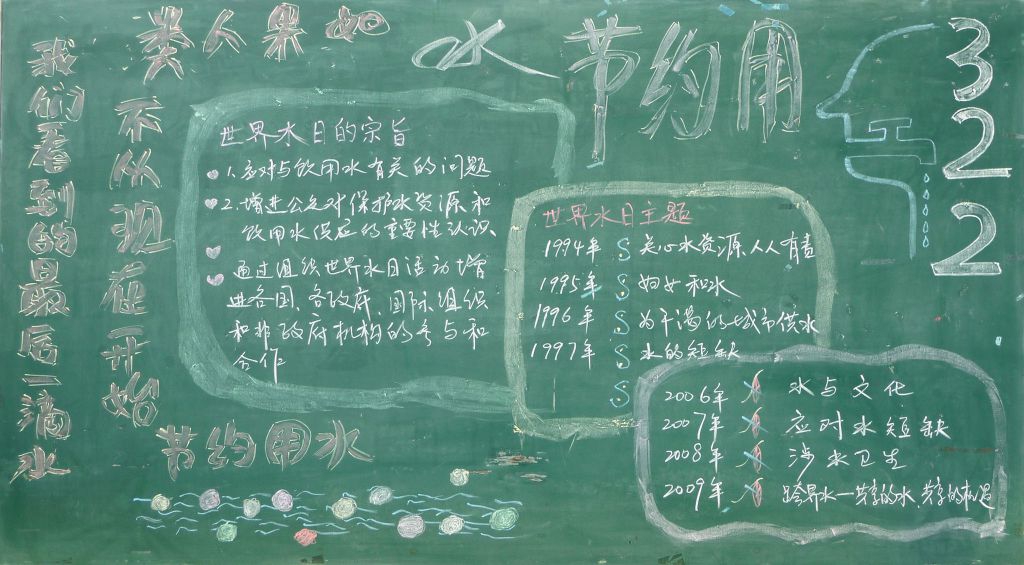 如果人类
不从现在开始
我们看到的最后一滴水
节约用水
322
世界水日的宗旨
1.应对与饮用水有关的问题
2.增进公众对保护水资源和
饮用水供应的重要性认识
通过组织世界水日活动增
进各国、各政府、国际组织
和非政府机构的参与和
合作
世界水日主题
1994年 关心水资源人人有责
1995年 妇女和水
1996年 为干渴的城市供水
1997年 水的短缺
2006年 水与文化
2007年 应对水短缺
2008年 涉水卫生
2009年 跨界水一共享的水、共享的机遇
节约用水